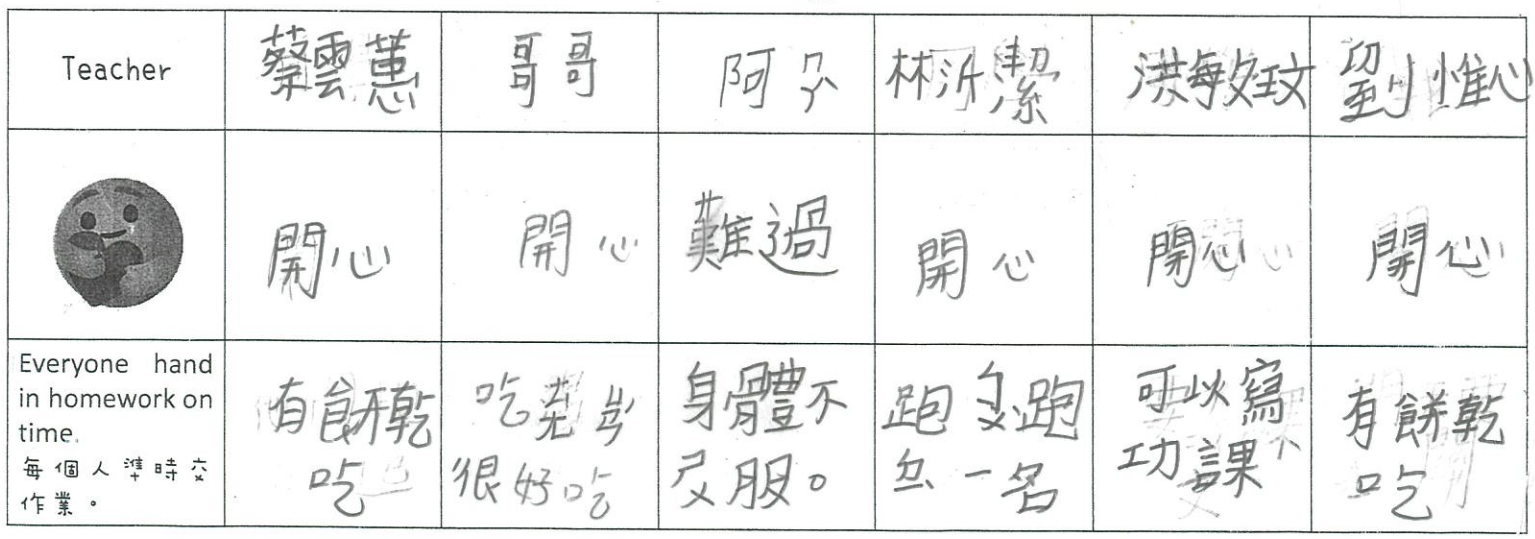 Teacher
蔡雲蕙
哥哥
阿公
林沂潔
洪敏玟
劉惟心
開心
開心
難過
開心
開心
開心
Everyone hand
in homework on
time.
每個人準時交
作業。
有餅乾
吃
吃
很好吃
身體不
服。
跑 跑
一名
可以寫
功課
有餅乾
吃